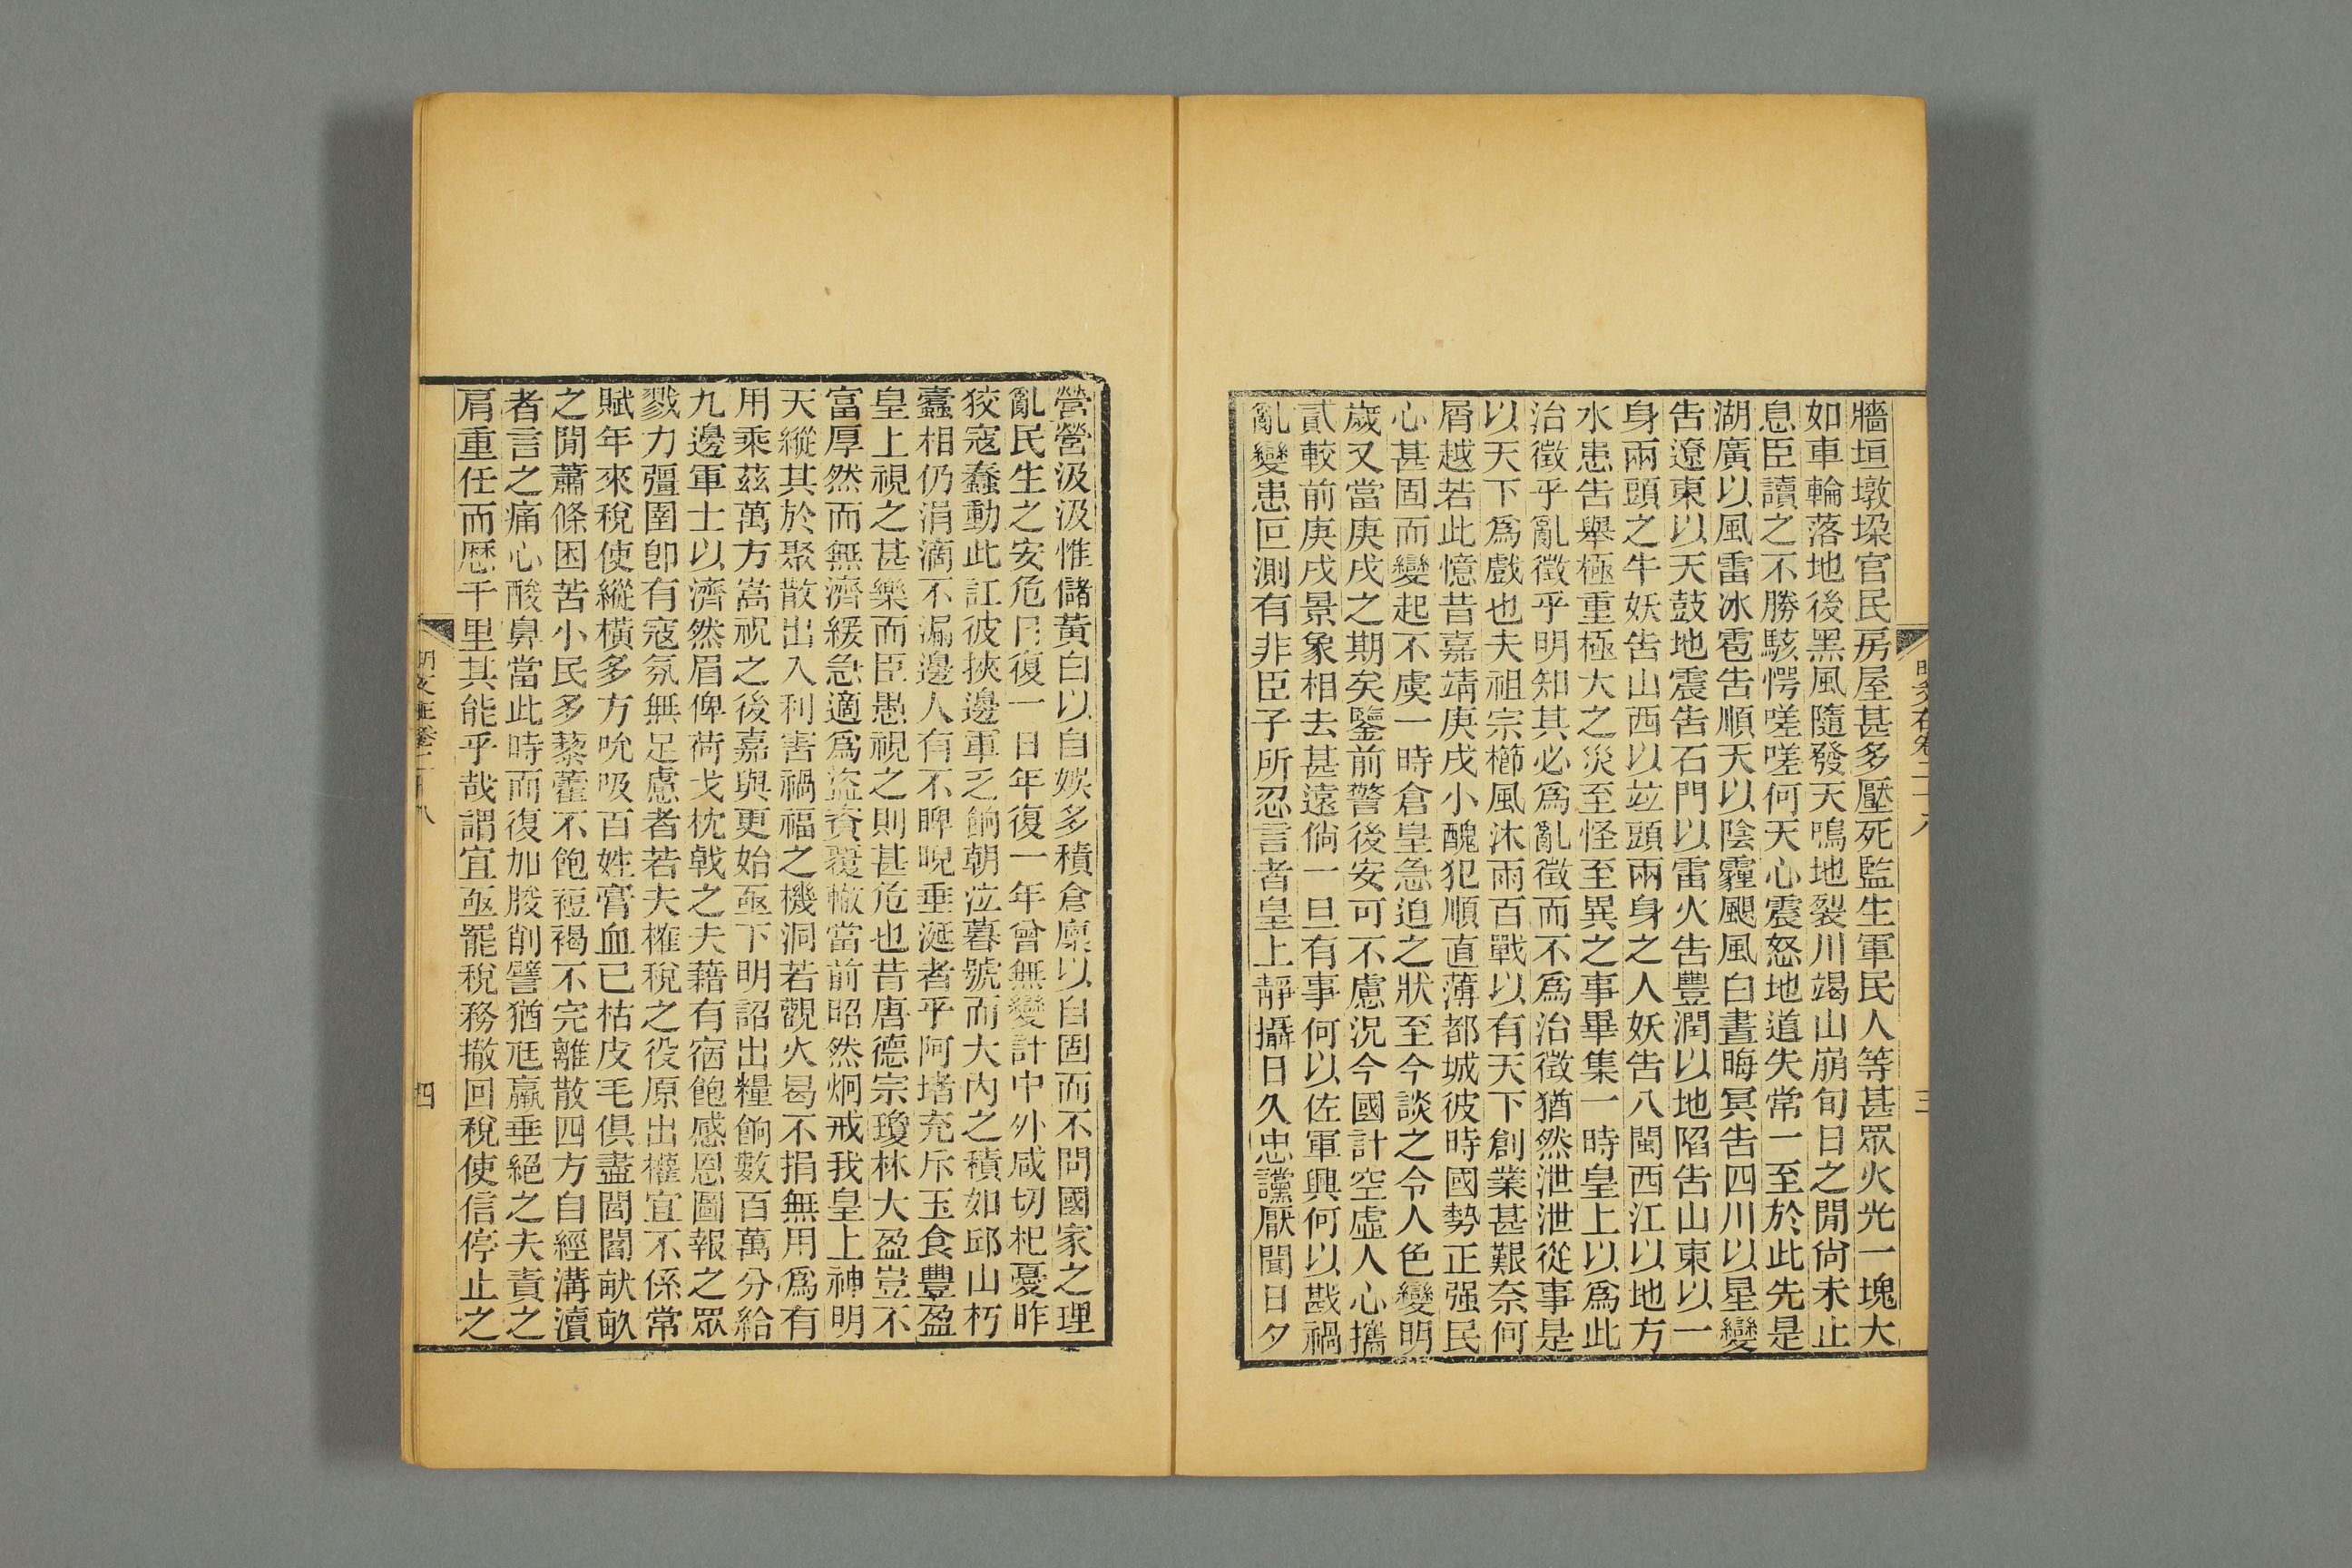 牆垣墩垜官民房屋甚多壓死監生軍民人等甚眾火光一塊大
如車輪落地後黑風隨發天鳴地裂川竭山崩旬日之閒尙未止
息臣讀之不勝駭愕嗟嗟何天心震怒地道失常一至於此先是
湖廣以風雷冰雹吿順天以陰霾颶風白晝晦冥吿四川以星變
吿遼東以天鼓地震吿石門以雷火吿豐潤以地陷吿山東以一
身兩頭之牛妖吿山西以竝頭兩身之人妖吿八閩西江以地方
水患吿舉極重極大之災至怪至異之事畢集一時皇上以爲此
治徵乎亂徵乎明知其必爲亂徵而不爲治徵猶然泄泄從事是
以天下爲戲也夫祖宗櫛風沐雨百戰以有天下創業甚艱奈何
屑越若此憶昔嘉靖庚戌小醜犯順直薄都城彼時國勢正强民
心甚固而變起不虞一時倉皇急迫之狀至今談之令人色變明
歲又當庚戌之期矣鑒前警後安可不慮況今國計空虛人心攜
貳較前庚戌景象相去甚遠倘一旦有事何以佐軍興何以戡禍
亂變患叵測有非臣子所忍言者皇上靜攝日久忠讜厭聞日夕
三
營營汲汲惟儲黃白以自娛多積倉廩以自固而不問國家之理
亂民生之安危日復一日年復一年曾無變計中外咸切杞憂昨
狡寇蠢動此訌彼挾邊軍乏餉朝泣暮號而大內之積如邱山朽
蠹相仍涓滴不漏邊人有不睥睨垂涎者乎阿堵充斥玉食豐盈
皇上視之甚樂而臣愚視之則甚危也昔唐德宗瓊林大盈豈不
富厚然而無濟緩急適爲盜資覆轍當前昭然炯戒我皇上神明
天縱其於聚散出入利害禍福之機洞若觀火曷不捐無用爲有
用乘茲萬方嵩祝之後嘉與更始亟下明詔出糧餉數百萬分給
九邊軍士以濟然眉俾荷戈枕戟之夫藉有宿飽感恩圖報之眾
戮力彊圉卽有寇氛無足慮者若夫榷稅之役原出權宜不係常
賦年來稅使縱橫多方吮吸百姓膏血已枯皮毛俱盡閭閻畎畝
之閒蕭條困苦小民多藜藿不飽裋褐不完離散四方自經溝瀆
者言之痛心酸鼻當此時而復加朘削譬猶尫羸垂絕之夫責之
肩重任而歷千里其能乎哉謂宜亟罷稅務撤回稅使信停止之
四